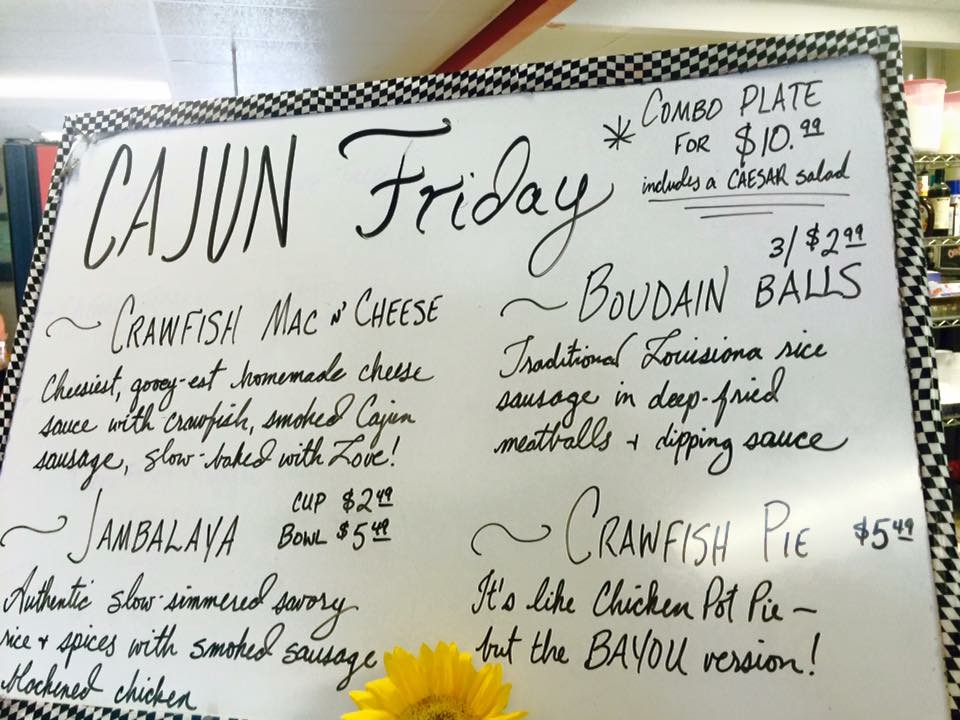 CAJUN Friday
* COMBO PLATE
FOR $10.99
includes a CAESAR salad
~ CRAWFISH MAC N' CHEESE
Cheesiest, gooey-est homemade cheese
sauce with crawfish, smoked Cajun
sausage, slow-baked with Love!
3/$2.99
~ BOUDAIN BALLS
Traditional Louisiona rice
sausage in deep-fried
meatballs + dipping sauce
~ JAMBALAYA
CUP $2.49
BOWL $5.49
Authentic slow-simmered savory
rice + spices with smoked sausage
blackened chicken
~ CRAWFISH PIE $5.49
It's like Chicken Pot Pie ~
but the BAYOU version!